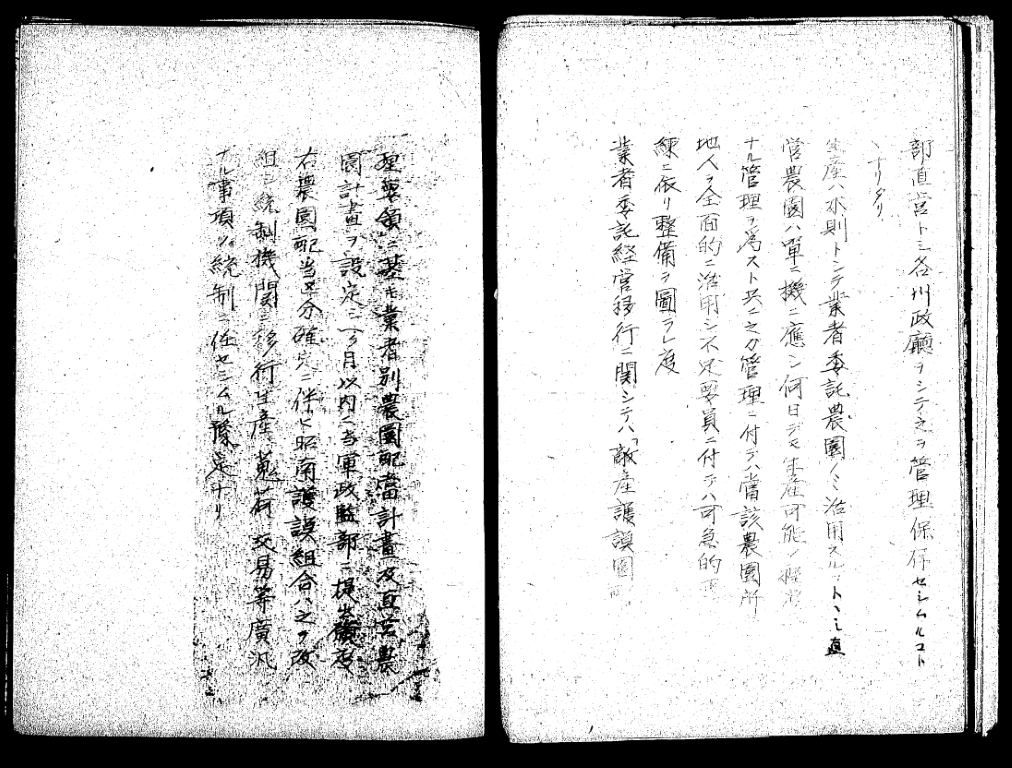 訂直営トシ各州政廳ヲシテ之ヲ管理保存セシムルコト
トナリタリ
生産ハ本則トシテ業者委託農園ノミ活用スルコトトシ直
営農園ハ單ニ機ニ應シ何日ニテモ生産可能ノ程度
ナル管理ヲ為スト共ニ之ガ管理ニ付テハ當該農園所
地人ヲ全面的ニ活用シ不足要員ニ付テハ可急的
練ニ依リ整備ヲ圖ラレ度
業者委託経営移行ニ関シテハ「敵産護謨園
理要領ニ基キ業者別農園配當計畫及直営農
園計畫ヲ設定シ二ヶ月以内ニ当軍政監部ニ提出
右農園配当区分確定ニ伴ヒ昭南護謨組合ヲ之ヲ改
組シ統制機関ニ移行生産蒐荷交易等廣汎
ナル事項ノ統制ニ任セシムル豫定ナリ